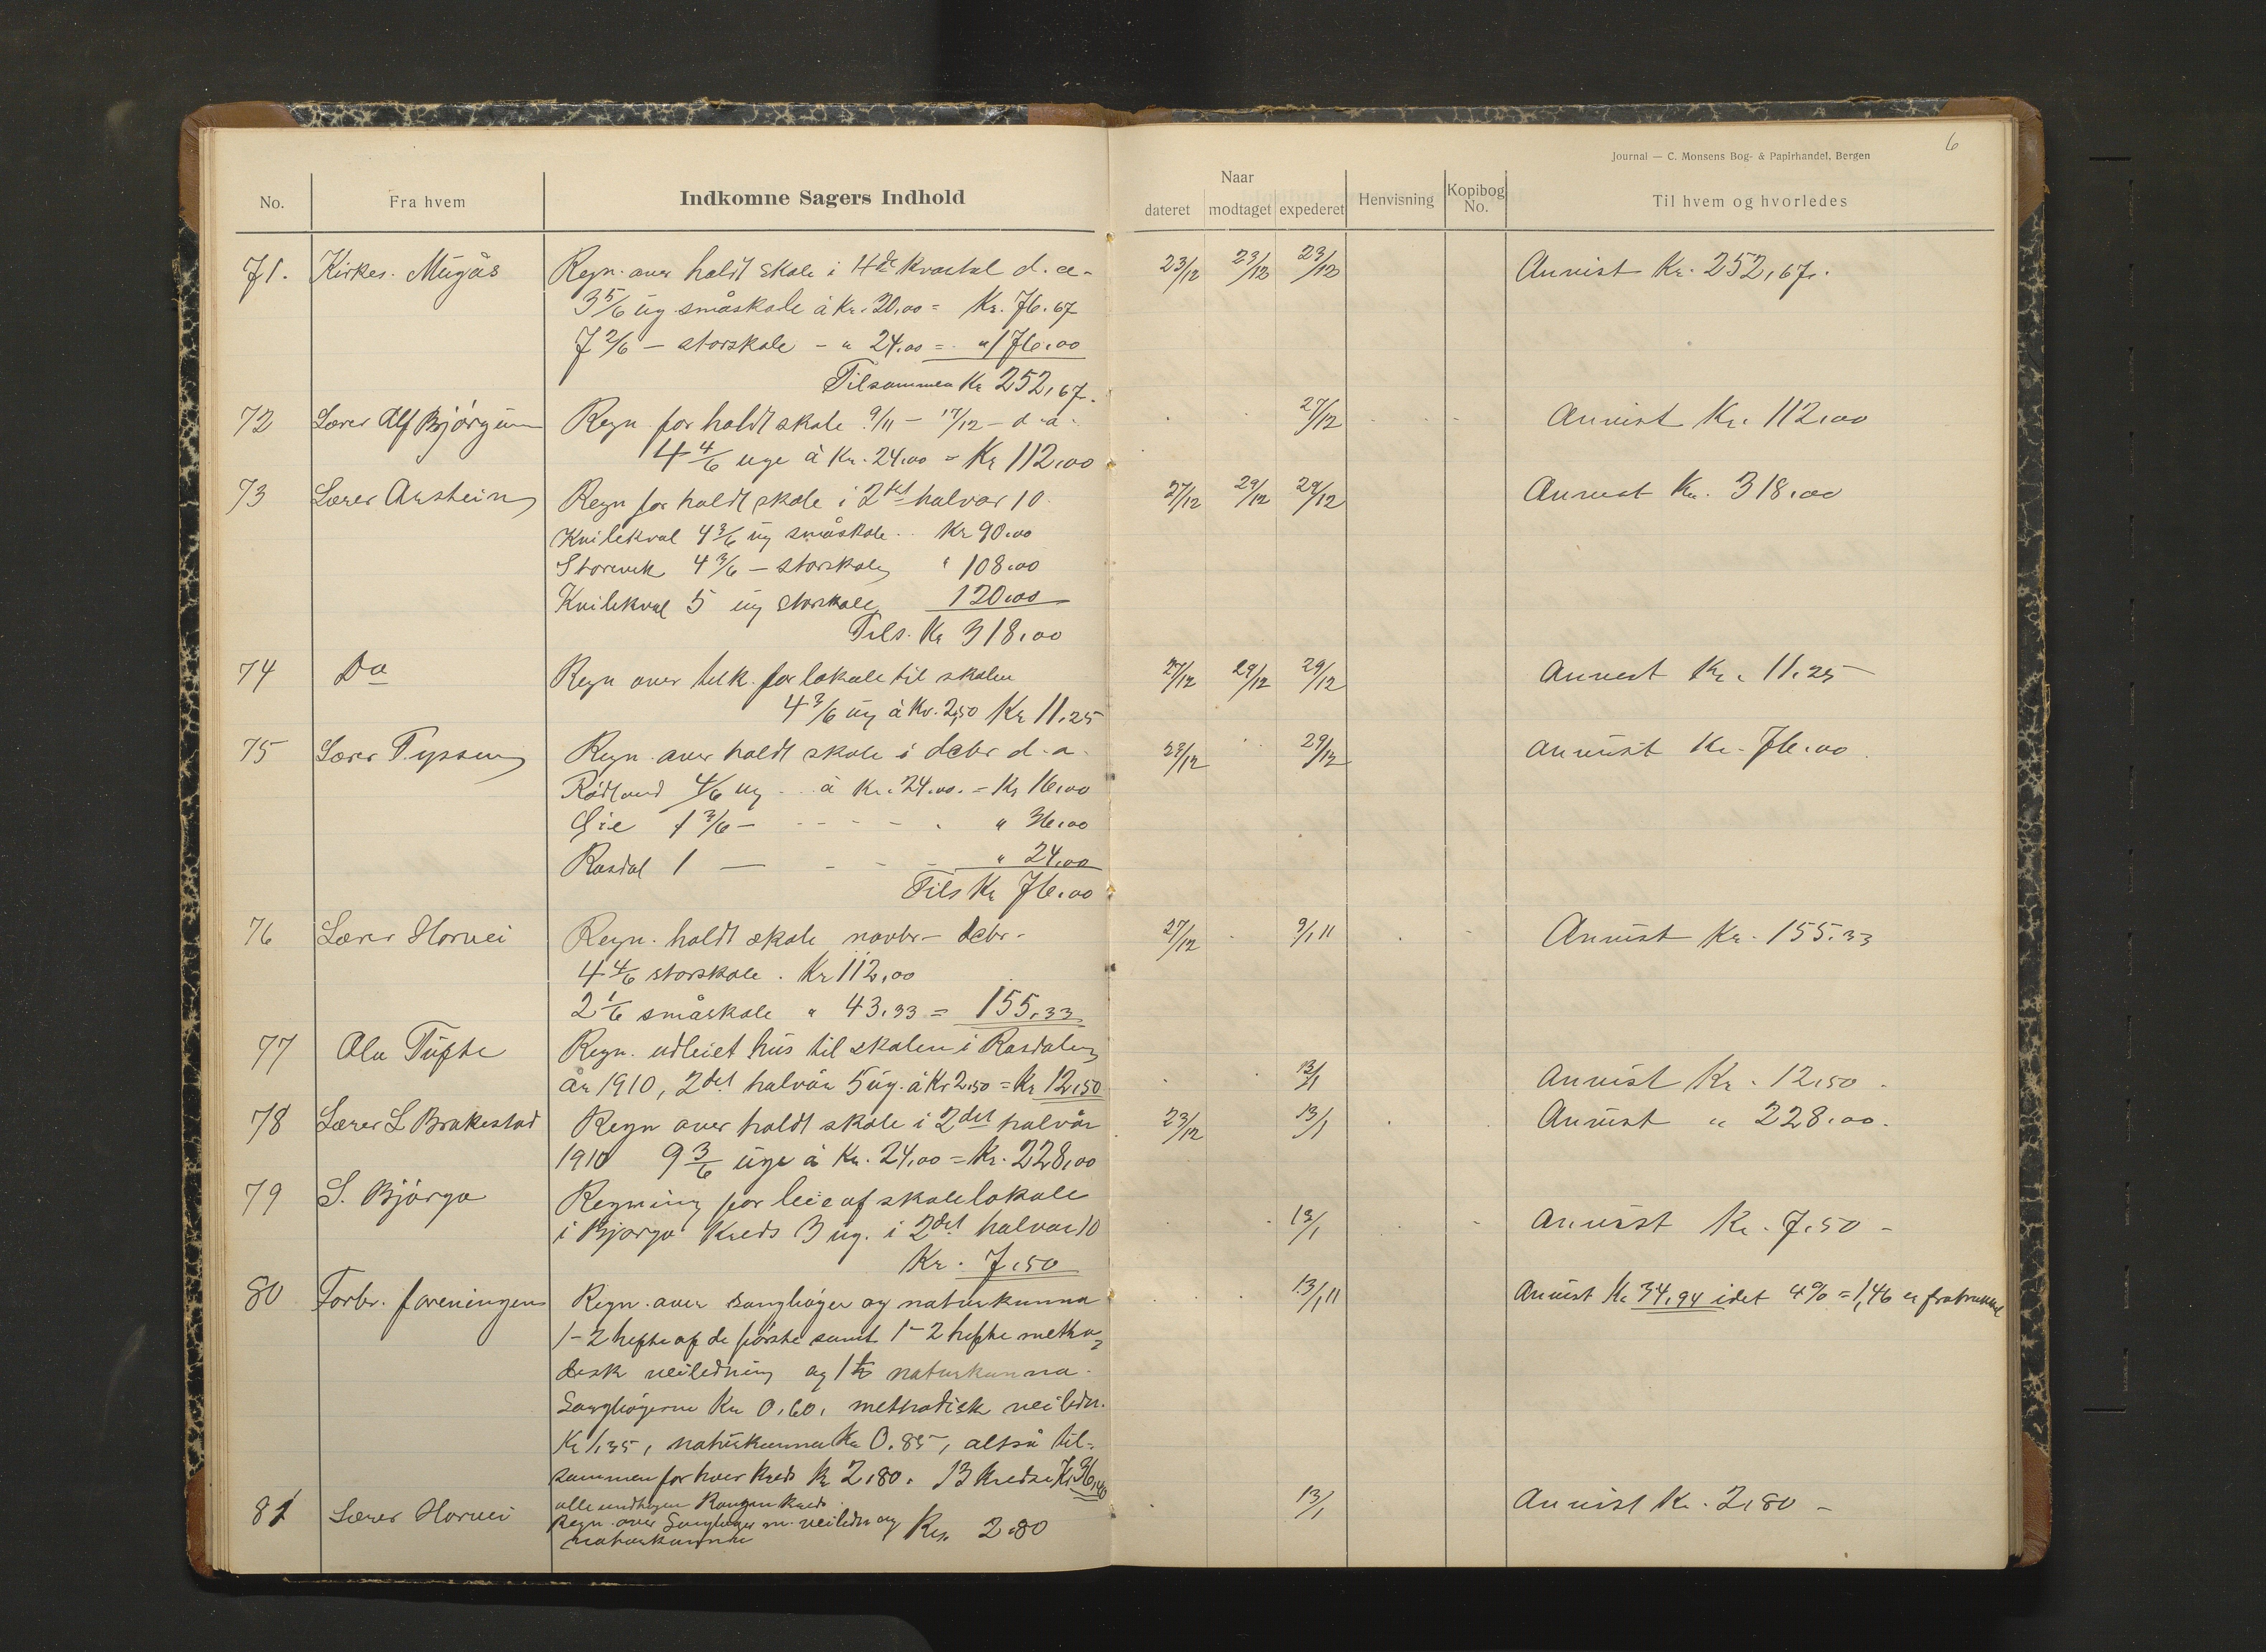 6
Journal — C. Monsens Bog- & Papirhandel, Bergen
No. Fra hvem Indkomne Sagers Indhold
Naar
dateret modtaget expederet Henvisning Kopibog No. Til hvem og hvorledes
71. Kirkes. Mugås Regn. over holdt skole i 4de kvartal d. a. 23/12 23/12 23/12 Anvist Kr. 252,67.
3 5/6 ug. småskole à Kr. 20,00 = Kr. 76.67
7 2/6 — storskole - " 24.00 = " 176.00
Tilsammen Kr 252,67.
72 Lærer Alf Bjørgum Regn. for holdt skole 9/11 - 17/12 - d. a. 27/12 Anvist Kr. 112,00
4 4/6 uge à Kr. 24,00 = Kr 112,00
73 Lærer Arstein Regn for holdt skole i 2det halvår 10 27/12 29/12 29/12 Anvist Kr. 318,00
Kvilekval 4 3/6 ug småskole .. Kr 90.00
Storevik 4 3/6 — storskole " 108.00
Kvilekval 5 ug storskole 120,00
Tils. Kr 318,00
74 Do Regn over tilk. for lokale til skolen 27/12 29/12 29/12 Anvist Kr. 11.25
4 3/6 ug à Kr. 2,50 Kr 11.25
75 Lærer Tyssen Regn. over holdt skole i debr d. a. 29/12 Anvist Kr. 76.00
Rødland 4/6 ug .. à Kr. 24.00. = Kr 16,00
Gie 1 3/6 — " 36,00
Rasdal 1 — " 24,00
Tils Kr 76.00
76 Lærer Horvei Regn. holdt skole novbr - debr - 27/12 9/1 11 Anvist Kr. 155.33
4 4/6 storskole . Kr 112,00
2 1/6 småskole " 43,33 = 155,33
77 Ola Tufte Regn. udleiet hus til skolen i Rasdalen
år 1910, 2det halvår 5 ug. à Kr 2,50 = Kr 12,50 13/1 Anvist Kr. 12,50 -
78 Lærer L Brakestad Regn over holdt skole i 2det halvår 23/12 13/1 Anvist " 228,00.
1910 9 3/6 uge à Kr. 24,00 = Kr. 228,00
79 S. Bjørgo Regning for leie af skolelokale
i Bjørgo Kreds 3 ug. i 2det halvår 10 13/1 Anvist Kr. 7.50 -
Kr. 7,50
80 Forbr. foreningen Regn. over sangbøger og naturkunna 13/1 11 Anvist Kr 34,94 idet 4% = 1,46 er fratrukket
1-2 hefte af de første samt 1-2 hefte metho-
disk veiledning og 1 naturkunna.
Sangbøgerne Kr 0,60, methodisk veiledn.
Kr 1,35, naturkunna Kr 0.85, altså til-
sammen for hver kreds Kr 2,80. 13 kredse Kr 36,40
alle undtagen kreds.
81 Lærer Horvei Regn. over Sangbøger m. veiledn og Kr. 2.80 13/1 Anvist Kr. 2,80 -
naturkunna